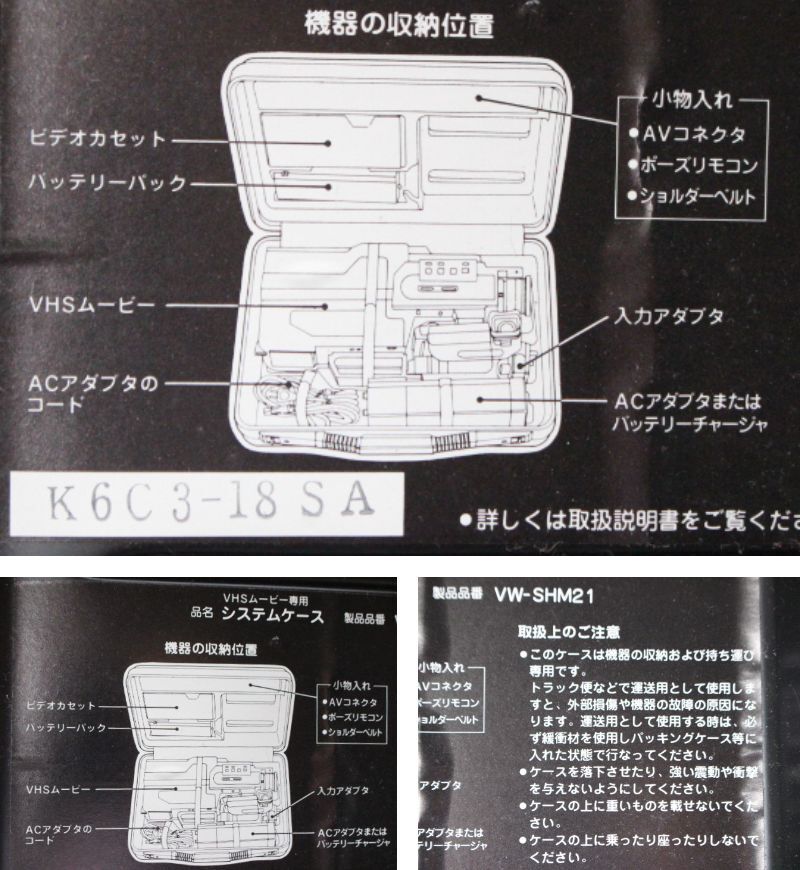 機器の収納位置
小物入れ
ビデオカセット
●AVコネクタ
●ポーズリモコン
バッテリーパック
●ショルダーベルト
VHSムービー
入力アダプタ
ACアダプタの
コード
ACアダプタまたは
バッテリーチャージャ
K6C3-18SA
●詳しくは取扱説明書をご覧くださ
VHSムービー専用
品名 システムケース 製品品番
機器の収納位置
小物入れ
ビデオカセット
●AVコネクタ
●ポーズリモコン
バッテリーパック
●ショルダーベルト
VHSムービー
入力アダプタ
ACアダプタの
コード
ACアダプタまたは
バッテリーチャージャ
製品品番 VW-SHM21
取扱上のご注意
●このケースは機器の収納および持ち運び
専用です。
トラック便などで運送用として使用しま
すと、外部損傷や機器の故障の原因にな
ります。運送用として使用する時は、必
ず緩衝材を使用しパッキングケース等に
入れた状態で行なってください。
●ケースを落下させたり、強い震動や衝撃
を与えないようにしてください。
●ケースの上に重いものを載せないでくだ
さい。
●ケースの上に乗ったり座ったりしないで
ください。
小物入れ
AVコネクタ
ポーズリモコン
ョルダーベルト
アダプタ
アダプタまたは
テリーチャージャ